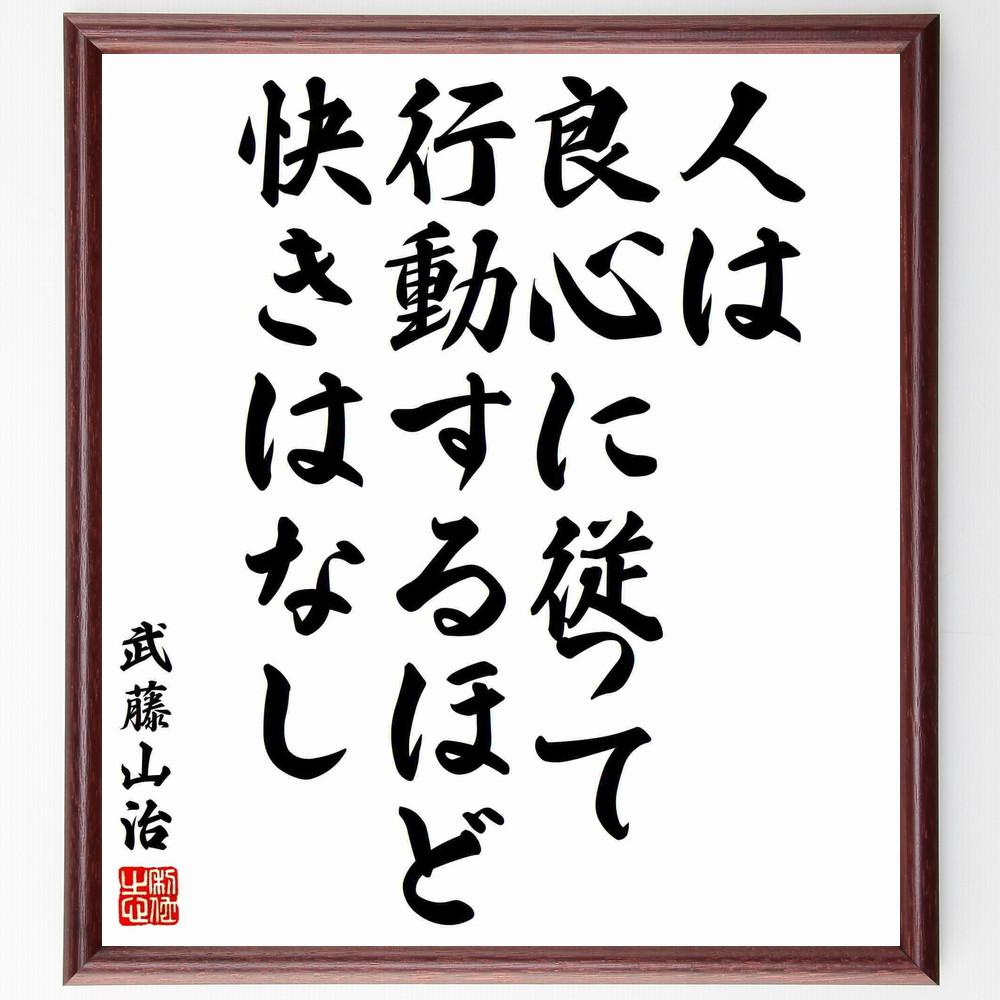 人は
良心に従って
行動するほど
快きはなし
武藤山治